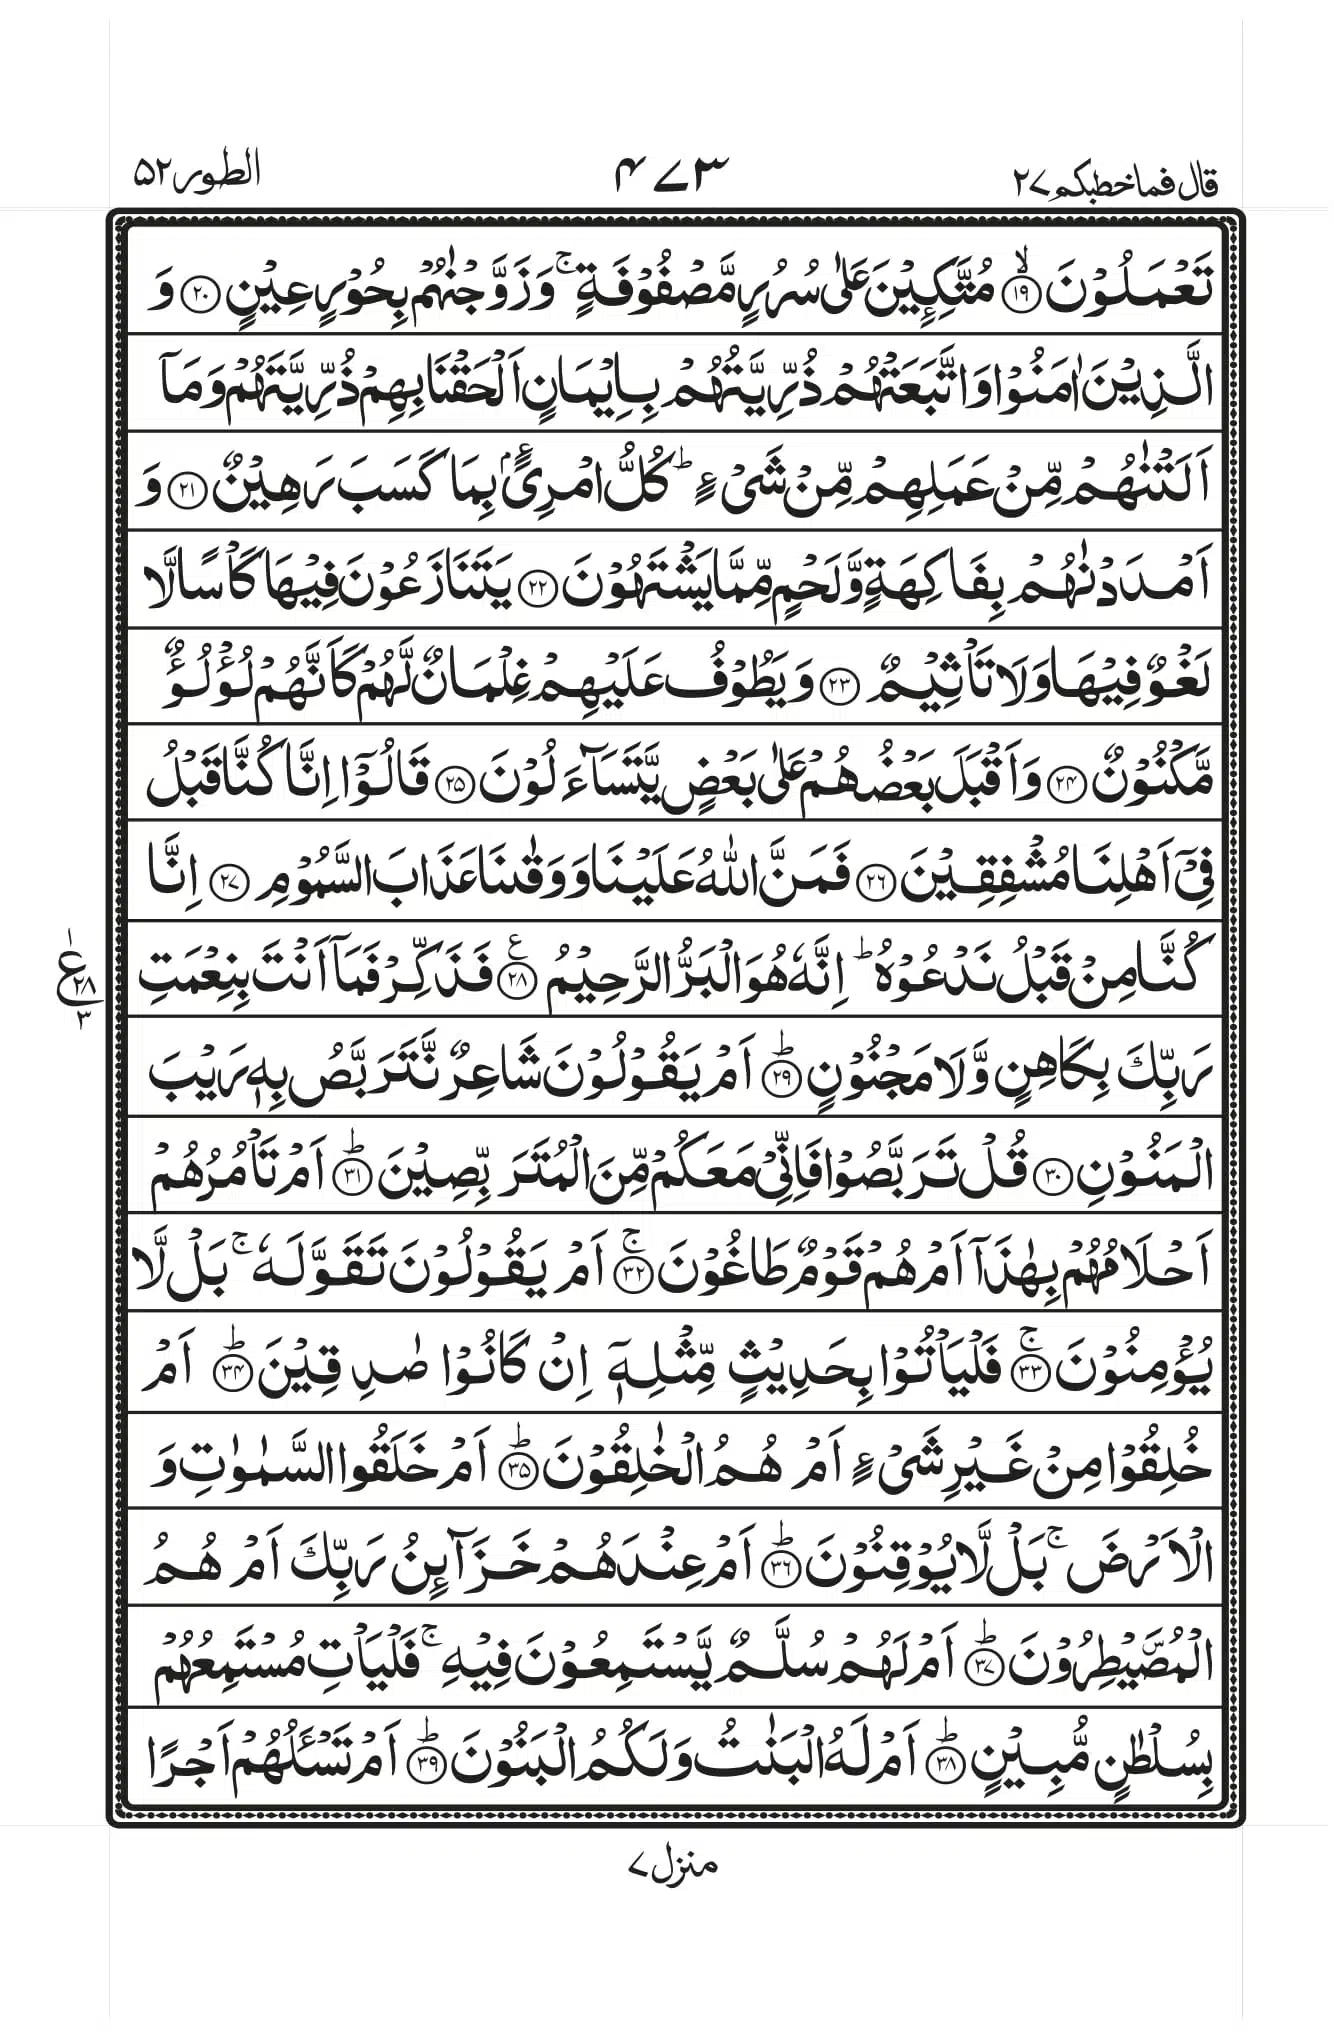 قال فما خطبكم ٢٧
٤٧٣
الطور ٥٢
تَعۡمَلُوۡنَ ۙ‏﴿۱۹﴾ مُتَّكِـِٕيۡنَ عَلٰى سُرُرٍ مَّصۡفُوۡفَةٍ‌ ۚ وَزَوَّجۡنٰهُمۡ بِحُوۡرٍ عِيۡنٍ ﴿۲۰﴾ وَ
الَّذِيۡنَ اٰمَنُوۡا وَاتَّبَعَتۡهُمۡ ذُرِّيَّتُهُمۡ بِاِيۡمَانٍ اَلۡحَـقۡنَا بِهِمۡ ذُرِّيَّتَهُمۡ وَمَاۤ
اَلَـتۡنٰهُمۡ مِّنۡ عَمَلِهِمۡ مِّنۡ شَىۡءٍ‌ ؕ كُلُّ امۡرِیٴٍۢ بِمَا كَسَبَ رَهِيۡنٌ ﴿۲۱﴾ وَ
اَمۡدَدۡنٰهُمۡ بِفَاكِهَةٍ وَّلَحۡمٍ مِّمَّا يَشۡتَهُوۡنَ ﴿۲۲﴾ يَـتَـنَازَعُوۡنَ فِيۡهَا كَاۡسًا لَّا
لَغۡوٌ فِيۡهَا وَلَا تَاۡثِيۡمٌ ﴿۲۳﴾ وَيَطُوۡفُ عَلَيۡهِمۡ غِلۡمَانٌ لَّهُمۡ كَاَنَّهُمۡ لُـؤۡلُـؤٌ
مَّكۡنُوۡنٌ ﴿۲۴﴾ وَاَقۡبَلَ بَعۡضُهُمۡ عَلٰى بَعۡضٍ يَّتَسَآءَلُوۡنَ ﴿۲۵﴾ قَالُـوۡۤا اِنَّا كُـنَّا قَبۡلُ
فِىۡۤ اَهۡلِنَا مُشۡفِقِيۡنَ ﴿۲۶﴾ فَمَنَّ اللّٰهُ عَلَيۡنَا وَوَقٰٮنَا عَذَابَ السَّمُوۡمِ ﴿۲۷﴾ اِنَّا
كُـنَّا مِنۡ قَبۡلُ نَدۡعُوۡهُ‌ ؕ اِنَّهٗ هُوَ الۡبَـرُّ الرَّحِيۡمُ ﴿۲۸﴾ ع فَذَكِّرۡ فَمَاۤ اَنۡتَ بِنِعۡمَتِ
١ ع ٢٨ ٣
رَبِّكَ بِكَاهِنٍ وَّلَا مَجۡنُوۡنٍ ؕ‏﴿۲۹﴾ اَمۡ يَقُوۡلُوۡنَ شَاعِرٌ نَّتَـرَبَّصُ بِهٖ رَيۡبَ
الۡمَنُوۡنِ ﴿۳۰﴾ قُلۡ تَرَبَّصُوۡا فَاِنِّىۡ مَعَكُمۡ مِّنَ الۡمُتَـرَبِّصِيۡنَ ؕ‏﴿۳۱﴾ اَمۡ تَاۡمُرُهُمۡ
اَحۡلَامُهُمۡ بِهٰذَآ‌ اَمۡ هُمۡ قَوۡمٌ طَاغُوۡنَ‌ ۚ‏﴿۳۲﴾ اَمۡ يَقُوۡلُوۡنَ تَقَوَّلَهٗ‌ ۚ بَلْ لَّا
يُؤۡمِنُوۡنَ‌ ۚ‏﴿۳۳﴾ فَلۡيَاۡتُوۡا بِحَدِيۡثٍ مِّثۡلِهٖۤ اِنۡ كَانُوۡا صٰدِقِيۡنَ ؕ‏﴿۳۴﴾ اَمۡ
خُلِقُوۡا مِنۡ غَيۡرِ شَىۡءٍ اَمۡ هُمُ الۡخٰلِقُوۡنَ ؕ‏﴿۳۵﴾ اَمۡ خَلَـقُوا السَّمٰوٰتِ وَ
الۡاَرۡضَ‌ ۚ بَلْ لَّا يُوۡقِنُوۡنَ ؕ‏﴿۳۶﴾ اَمۡ عِنۡدَهُمۡ خَزَآٮِٕنُ رَبِّكَ اَمۡ هُمُ
الۡمُصَۜيۡطِرُوۡنَ ؕ‏﴿۳۷﴾ اَمۡ لَهُمۡ سُلَّمٌ يَّسۡتَمِعُوۡنَ فِيۡهِ‌ ۚ فَلۡيَاۡتِ مُسۡتَمِعُهُمۡ
بِسُلۡطٰنٍ مُّبِيۡنٍ ؕ‏﴿۳۸﴾ اَمۡ لَـهُ الۡبَنٰتُ وَلَـكُمُ الۡبَنُوۡنَ ؕ‏﴿۳۹﴾ اَمۡ تَسۡـَٔـلُهُمۡ اَجۡرًا
منزل ٧